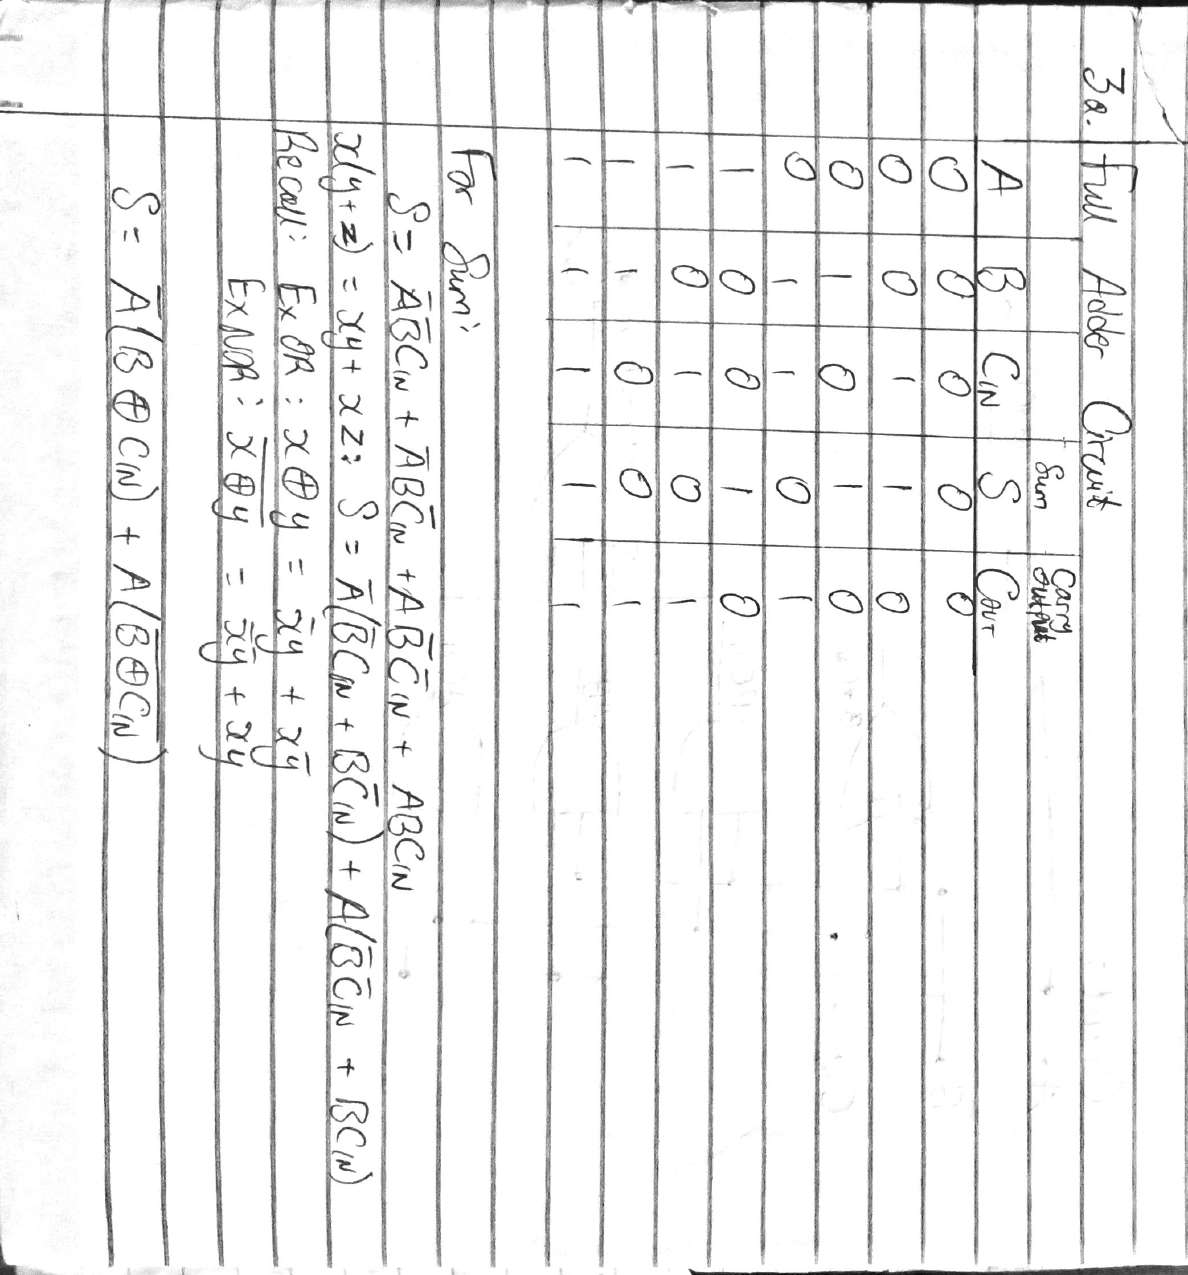 3a. Full Adder Circuit
Sum Carry output
A B CIN S COUT
0 0 0 0 0
0 0 1 1 0
0 1 0 1 0
0 1 1 0 1
1 0 0 1 0
1 0 1 0 1
1 1 0 0 1
1 1 1 1 1
For Sum:
S = A̅B̅CIN + A̅BC̅IN + AB̅C̅IN + ABCIN
x(y+z) = xy + xz: S = A̅(B̅CIN + BC̅IN) + A(B̅C̅IN + BCIN)
Recall: ExOR: x⊕y = x̅y + xy̅
ExNOR: x̅⊕̅y̅ = x̅y̅ + xy
S = A̅(B⊕CIN) + A(B̅⊕̅C̅I̅N̅)